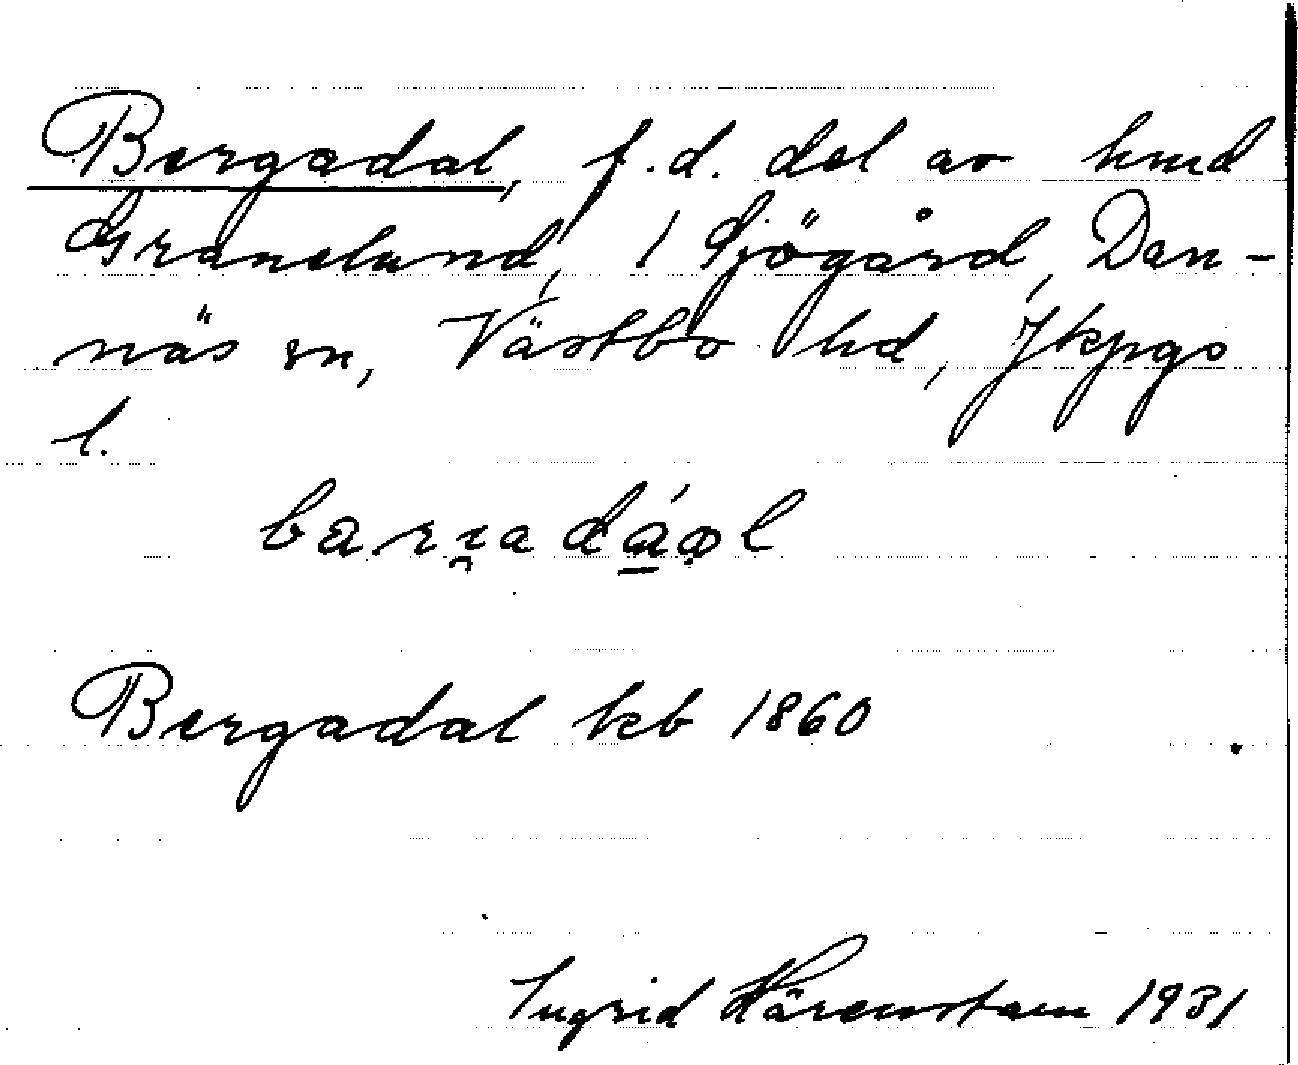 Bergadal, f.d. del av hmd
Granelund, 1 Sjögård, Dan-
näs sn, Västbo hd, Jkpgs
l.
barɪ̯adáol
Bergadal kb 1860
Ingrid Härenstam 1931